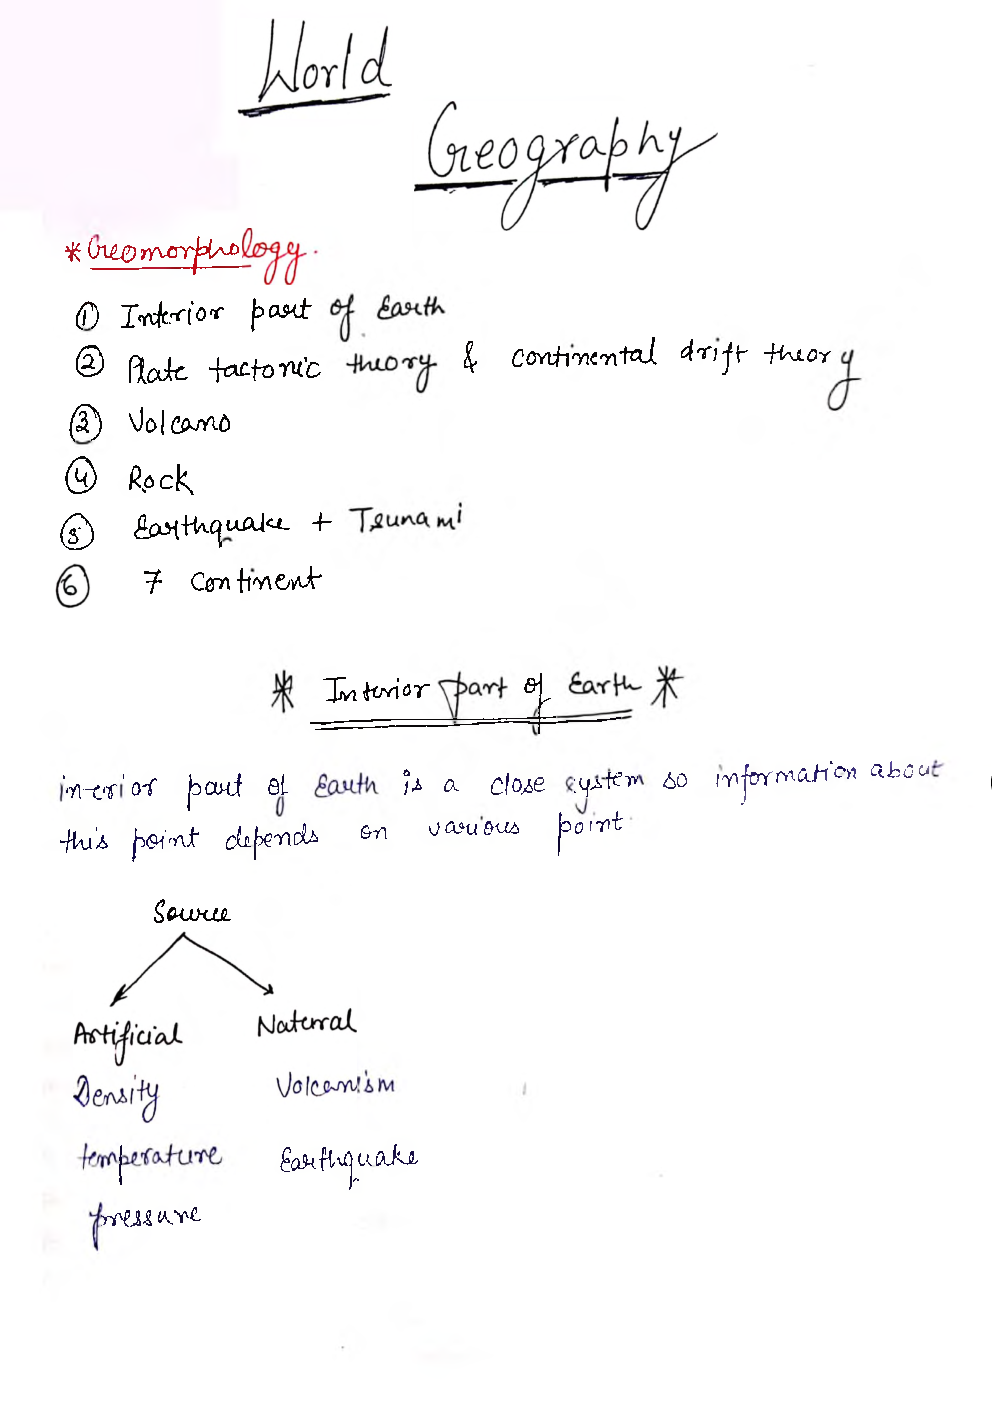 World
Geography
* Geomorphology.
① Interior part of Earth
② Plate tactonic theory & continental drift theory
③ Volcano
④ Rock
⑤ Earthquake + Tsunami
⑥ 7 Continent
* Interior part of Earth *
interior part of Earth is a close system so information about
this point depends on various point.
Source
Artificial Naterral
Density Volcanism
temperature Earthquake
pressure